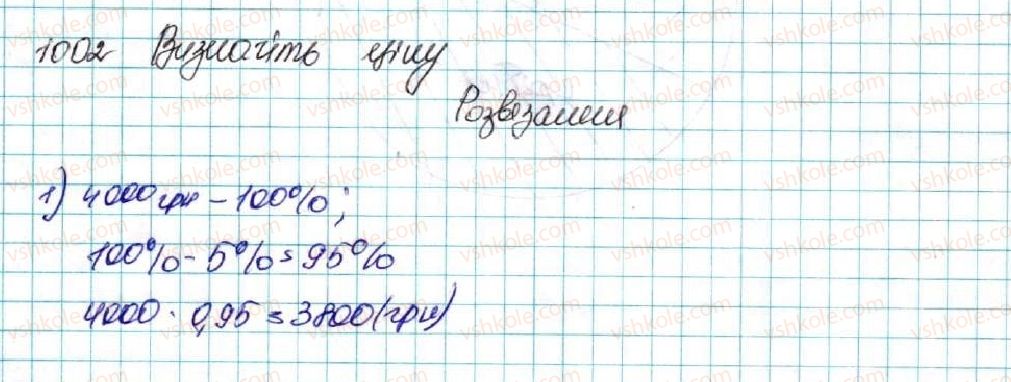 1002 Визначіть ціну
Розвезання
1) 4000 грн - 100%;
100% - 5% = 95%
4000 · 0,95 = 3800 (грн)